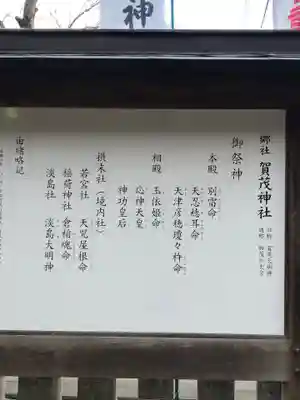 神
郷社 賀茂神社
御祭神
本殿 別雷命
天忍穂耳命
天津彦穂瓊々杵命
相殿 玉依姫命
応神天皇
神功皇后
摂末社（境内社）
若宮社 天児屋根命
稲荷神社 倉稲魂命
淡島社 淡島大明神
由緒略記